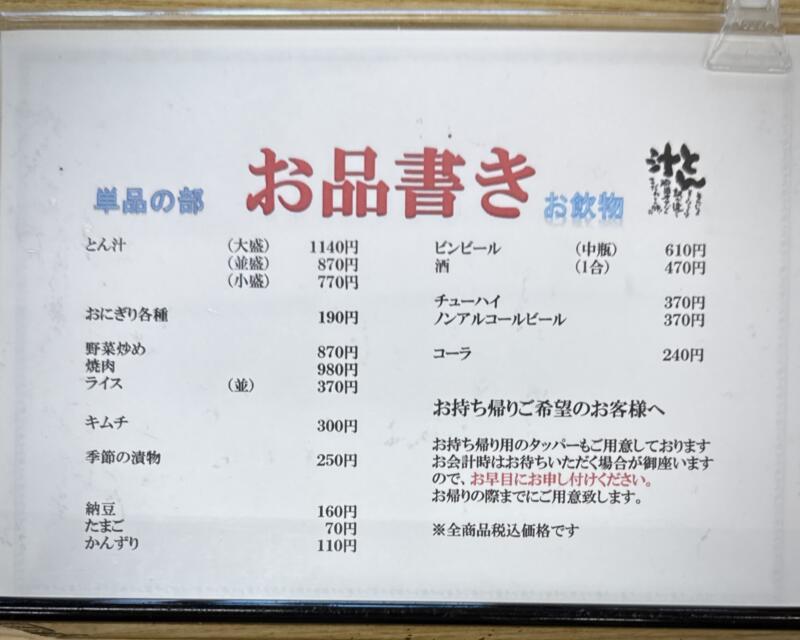 お品書き
とん汁
単品の部
とん汁 (大盛) 1140円
(並盛) 870円
(小盛) 770円
おにぎり各種 190円
野菜炒め 870円
焼肉 980円
ライス (並) 370円
キムチ 300円
季節の漬物 250円
納豆 160円
たまご 70円
かんずり 110円
お飲物
ビンビール (中瓶) 610円
酒 (1合) 470円
チューハイ 370円
ノンアルコールビール 370円
コーラ 240円
お持ち帰りご希望のお客様へ
お持ち帰り用のタッパーもご用意しております
お会計時はお待ちいただく場合が御座います
ので、お早目にお申し付けください。
お帰りの際までにご用意致します。
※全商品税込価格です